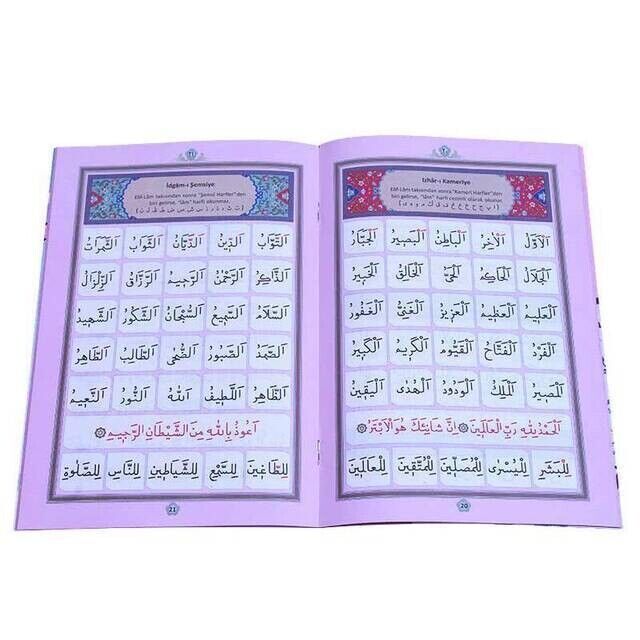 ٢٠
Izhâr-ı Kameriye
Elif-Lâm takısından sonra "Kameri Harfler"den
biri gelirse, "lâm" harfi cezimli olarak okunur.
اَلْاَوَّلُ اَلْاٰخِرُ اَلْبَاطِنُ اَلْبَصِيرُ اَلْجَبَّارُ
اَلْجَلَالُ اَلْحَاكِمُ اَلْحَيُّ اَلْخَالِقُ اَلْخَبِيرُ
اَلْعَلِيمُ اَلْعَظِيمُ اَلْعَزِيزُ اَلْغَنِيُّ اَلْغَفُورُ
اَلْفَرْدُ اَلْفَتَّاحُ اَلْقَيُّومُ اَلْكَرِيمُ اَلْكَبِيرُ
اَلْمَصِيرُ اَلْمَلِكُ اَلْوَدُودُ اَلْهُدٰى اَلْيَقِينُ
اَلْحَمْدُ لِلّٰهِ رَبِّ الْعَالَمِينَ ۞ اِنَّ شَانِئَكَ هُوَ الْاَبْتَرُ ۞
لِلْبَشَرِ لِلْيُسْرٰى لِلْمُصَلِّينَ لِلْمُتَّقِينَ لِلْعَالَمِينَ
20
٢١
İdgâm-ı Şemsiye
Elif-Lâm takısından sonra "Şemsî Harfler"den
biri gelirse, "lâm" harfi okunmaz.
اَلتَّوَّابُ اَلدِّينُ اَلدَّيَّانُ اَلثَّوَابُ اَلثَّمَرَاتُ
اَلرَّحْمٰنُ اَلرَّحِيمُ اَلرَّزَّاقُ اَلزِّلْزَالُ
اَلسَّلَامُ اَلسَّمِيعُ اَلسُّبْحَانُ اَلشَّكُورُ اَلشَّهِيدُ
اَلصَّمَدُ اَلصَّبُورُ اَلضُّحٰى اَلطَّالِبُ اَلطَّاهِرُ
اَلظَّاهِرُ اَللَّطِيفُ اَللّٰهُ اَلنُّورُ اَلنَّعِيمُ
اَعُوذُ بِاللّٰهِ مِنَ الشَّيْطَانِ الرَّجِيمِ
لِلطَّاغِينَ لِلسَّبْعِ لِلشَّيَاطِينِ لِلنَّاسِ لِلصَّلٰوةِ
21